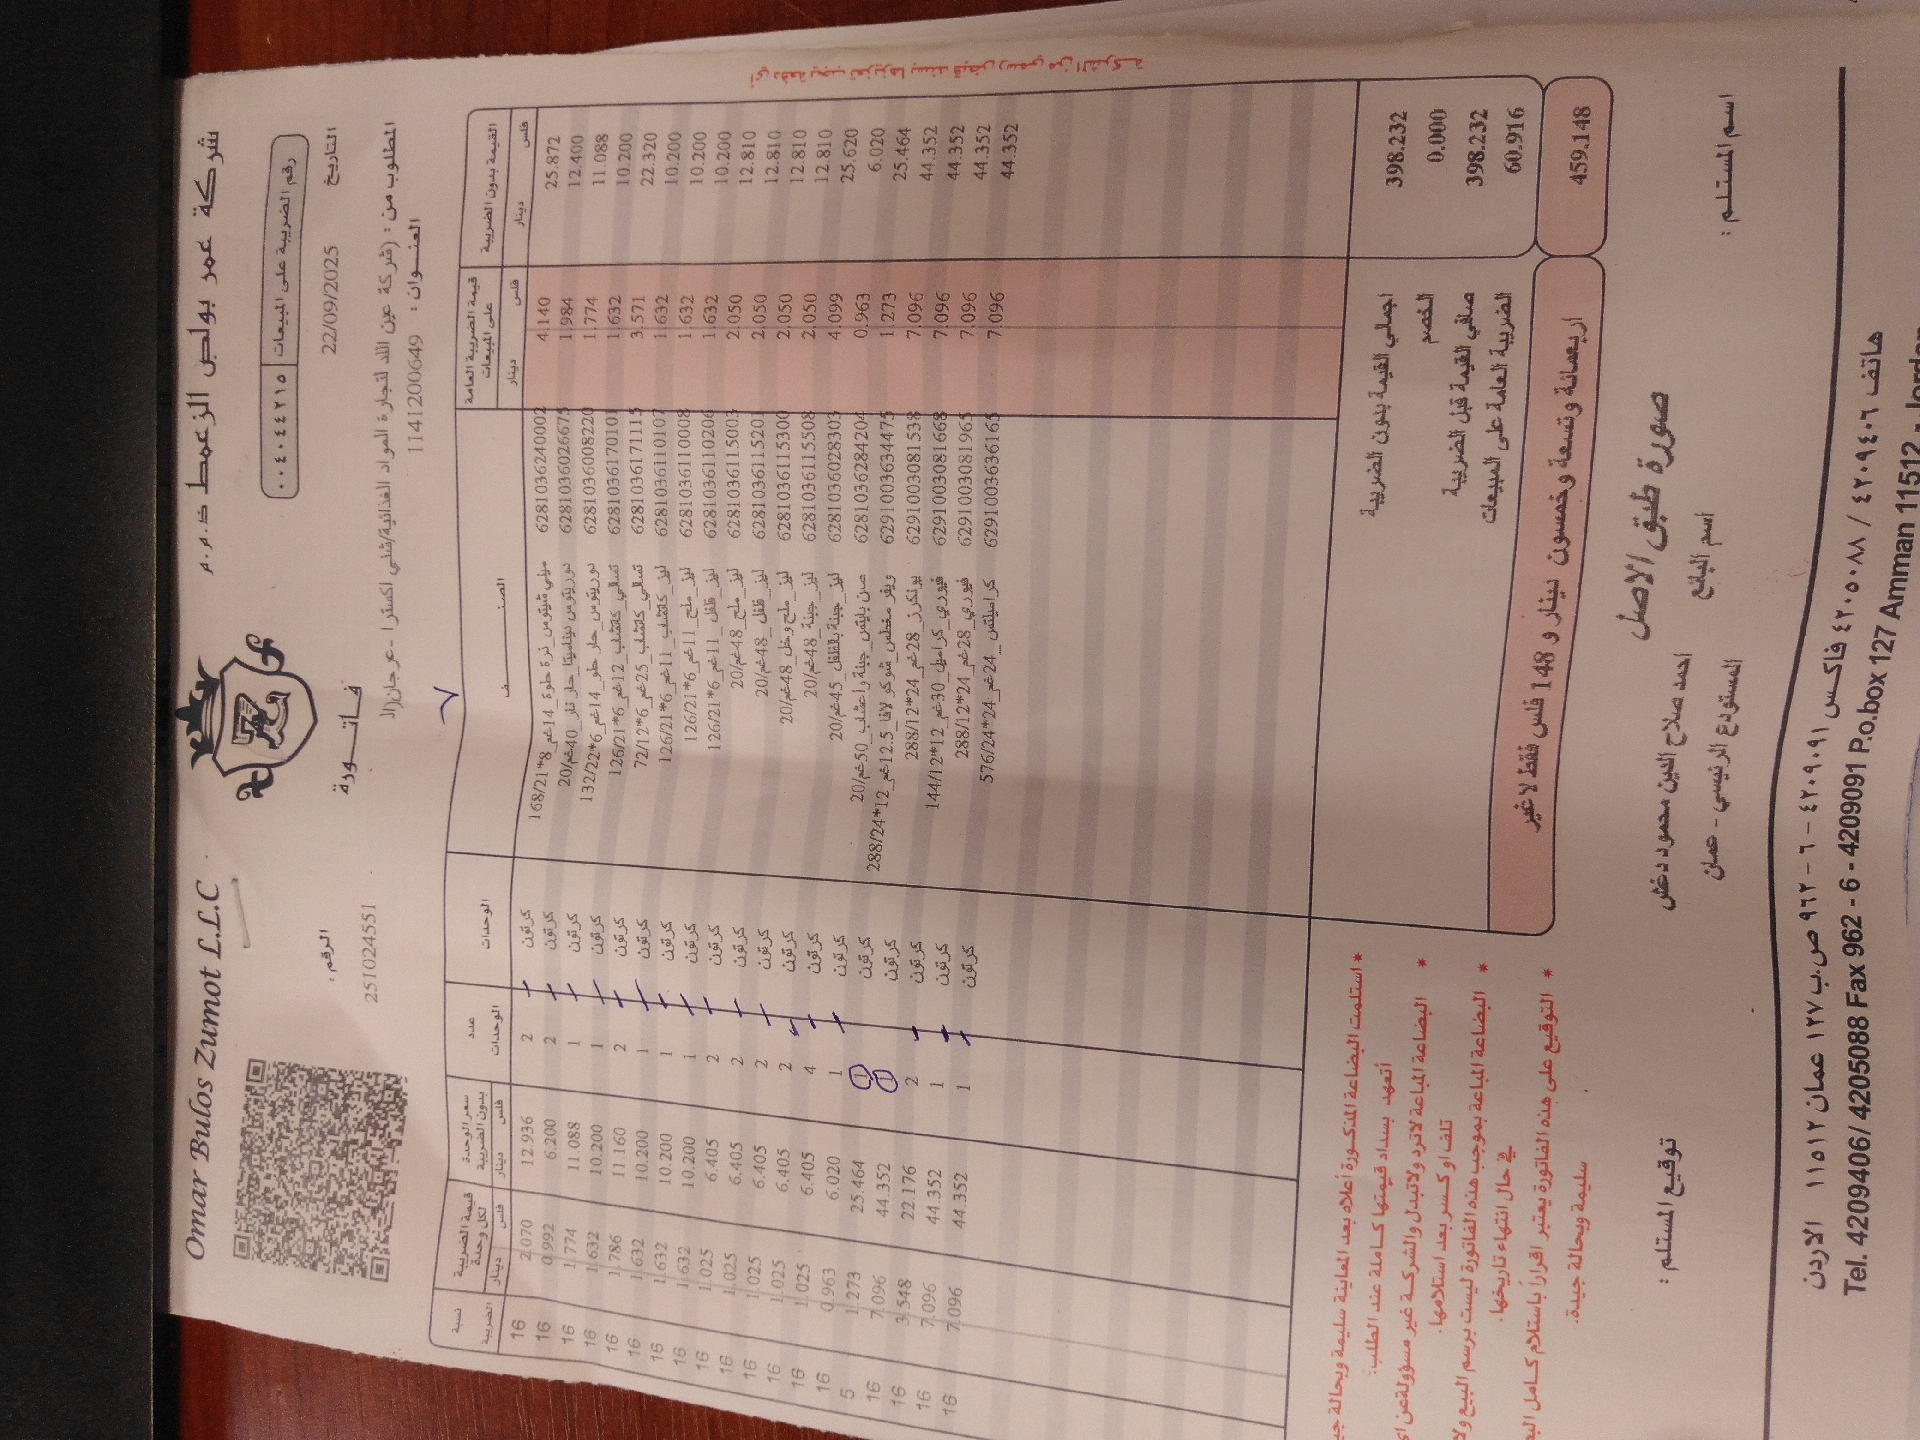 Omar Bulos Zumot L.L.C
شركة عمر بولص الزعمط ذ.م.م
رقم الضريبة على المبيعات ٠٠٤٠٤٤٢١٥
فاتورة
الرقم : 2510224551
التاريخ 22/09/2025
المطلوب من : (شركة عين اللد لتجارة المواد الغذائية/شني اكسترا - عرجان/را
العنوان : 114120064​9
نسبة الضريبة | قيمة الضريبة لكل وحدة دينار فلس | سعر الوحدة بدون الضريبة دينار فلس | عدد الوحدات | الوحدات | الصنف | قيمة الضريبة العامة على المبيعات دينار فلس | القيمة بدون الضريبة دينار فلس
16 2.070 12.936 2 كرتون ميني شيتوس_ذرة حلوة_14غم_8*168/21 6281036240002 4.140 25.872
16 0.992 6.200 2 كرتون دوريتوس ديناميتا_حار نار_40غم/20 6281036026675 1.984 12.400
16 1.774 11.088 1 كرتون دوريتوس_حار حلو_14غم_6*132/22 6281036008220 1.774 11.088
16 1.632 10.200 1 كرتون تسالي_كاتشاب_12غم_6*126/21 6281036170101 1.632 10.200
16 1.786 11.160 2 كرتون تسالي_كاتشاب_25غم_6*72/12 6281036171115 3.571 22.320
16 1.632 10.200 1 كرتون ليز_كاتشاب_11غم_6*126/21 6281036110107 1.632 10.200
16 1.632 10.200 1 كرتون ليز_ملح_11غم_6*126/21 6281036110008 1.632 10.200
16 1.632 10.200 1 كرتون ليز_فلفل_11غم_6*126/21 6281036110206 1.632 10.200
16 1.025 6.405 2 كرتون ليز_ملح_48غم/20 6281036115003 2.050 12.810
16 1.025 6.405 2 كرتون ليز_فلفل_48غم/20 6281036115201 2.050 12.810
16 1.025 6.405 2 كرتون ليز_ملح وخل_48غم/20 6281036115300 2.050 12.810
16 1.025 6.405 2 كرتون ليز_جبنة_48غم/20 6281036115508 2.050 12.810
16 1.025 6.405 4 كرتون ليز_جبنة بالفلفل_45غم/20 6281036028303 4.099 25.620
16 0.963 6.020 1 كرتون صن بايتس_جبنة واعشاب_50غم/20 6281036284204 0.963 6.020
5 1.273 25.464 1 كرتون ويفر مغطس_شوكو لافا_12.5غم_12*288/24 6291003634475 1.273 25.464
16 7.096 44.352 1 كرتون يونكرز_28غم_24*288/12 6291003081538 7.096 44.352
16 3.548 22.176 2 كرتون فيوري_كراميل_30غم_12*144/12 6291003081668 7.096 44.352
16 7.096 44.352 1 كرتون فيوري_28غم_24*288/12 6291003081965 7.096 44.352
16 7.096 44.352 1 كرتون كراميلتس_24غم_24*576/24 6291003636165 7.096 44.352
اجمالي القيمة بدون الضريبة 398.232
الخصم 0.000
صافي القيمة قبل الضريبة 398.232
الضريبة العامة على المبيعات 60.916
اربعمائة وتسعة وخمسون دينار و 148 فلس فقط لا غير 459.148
* استلمت البضاعة المذكورة أعلاه بعد المعاينة سليمة وبحالة
أتعهد بسداد قيمتها كاملة عند الطلب.
* البضاعة المباعة لا ترد ولا تبدل والشركة غير مسؤولة عن
تلف او كسر بعد استلامها.
* البضاعة المباعة بموجب هذه الفاتورة ليست برسم البيع ولا
في حال انتهاء تاريخها.
* التوقيع على هذه الفاتورة يعتبر اقراراً باستلام كامل
سليمة وبحالة جيدة.
صورة طبق الاصل
اسم البائع احمد صلاح الدين محمود دغش
المستودع الرئيسي - عمان
اسم المستلم :
توقيع المستلم :
هاتف ٤٢٠٩٤٠٦ / ٤٢٠٥٠٨٨ فاكس ٤٢٠٩٠٩١ - ٦ - ٩٦٢ ص.ب ١٢٧ عمان ١١٥١٢ الاردن
Tel. 4209406/ 4205088 Fax 962 - 6 - 4209091 P.o.box 127 Amman 11512 - Jordan